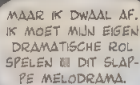 MAAR IK DWAAL AF.
IK MOET MIJN EIGEN
DRAMATISCHE ROL
SPELEN IN DIT SLAP-
PE MELODRAMA.